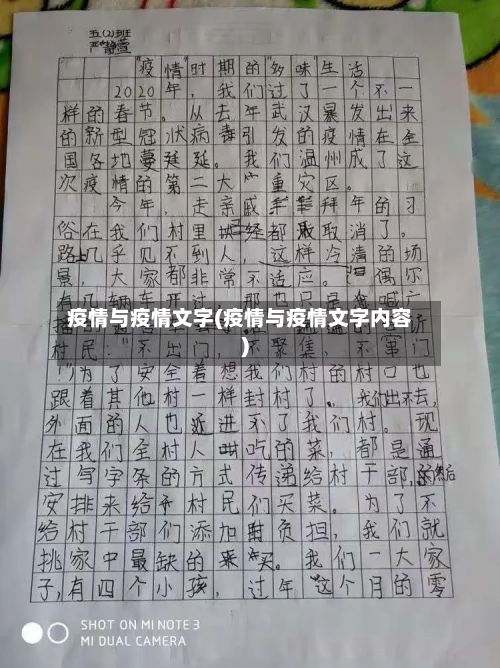 五(2)班
严静萱
"疫情"时期的"多味"生活
2020年，我们过了一个不一
样的春节。从去年武汉暴发出来
的新型冠状病毒引发的疫情在全
国各地蔓延。我们温州成了这
次疫情的第二大"重灾区。
今年，走亲戚拜年的习
俗在我们村里都取消了。
路上几乎见不到人，这样冷清的场
景，大家都非常不适应。偶尔
有几辆车开过，那也只是
疫情与疫情文字(疫情与疫情文字内容
)
村民："不出门，不聚集，不串门
!"为了安全着想我们村的村口也
跟着其他村一样封村了。我们出不去，
外面的人也进不了我们村。现
在我们全村人吃的菜，都是通
过写字条的方式传递给村干部，然后
安排来给村民们买菜。为了不
给村干部们添加负担，我们就
挑家中最缺的来买。我们一大家
子，有四个小孩，过年这个月的零
SHOT ON MI NOTE 3
MI DUAL CAMERA